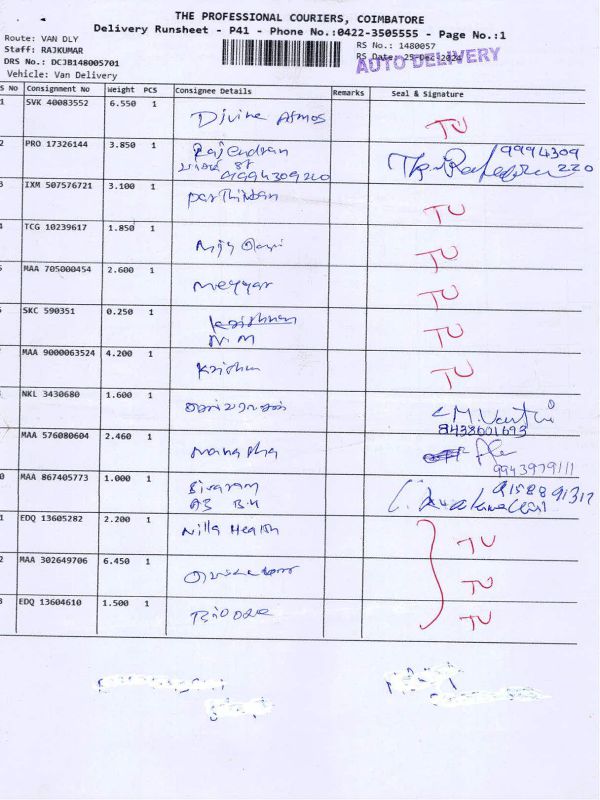 THE PROFESSIONAL COURIERS, COIMBATORE
Delivery Runsheet - P41 - Phone No.:0422-3505555 - Page No.:1
Route: VAN DLY
Staff: RAJKUMAR
DRS No.: DCJB148005701
Vehicle: Van Delivery
RS No.: 1480057
RS Date: 25-Dec-2024
AUTO DELIVERY
S No Consignment No Weight PCS Consignee Details Remarks Seal & Signature
1 SVK 40083552 6.550 1 Divine Atmos TU
2 PRO 17326144 3.850 1 Rajendran 9994309
St 9994309220 220
3 IXM 507576721 3.100 1 Parthiban TU
4 TCG 10239617 1.850 1 TU
MAA 705000454 2.600 1 Meyyar TU
SKC 590351 0.250 1 Krishnan TU
N.M
MAA 9000063524 4.200 1 Krishn TU
NKL 3430680 1.600 1
8438601693
MAA 576080604 2.460 1
9943979111
0 MAA 867405773 1.000 1 Sivaram
1 EDQ 13605282 2.200 1 Nilla Health TU
2 MAA 302649706 6.450 1 TU
3 EDQ 13604610 1.500 1 TU